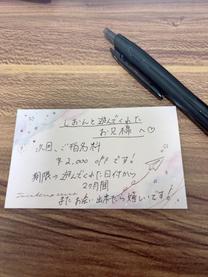 しおんと遊んでくれた
お兄様へ♡
次回、ご指名料
¥2,000 off です!
期限→遊んでくれた日付から
2ヶ月間
またお会い出来たら嬉しいです!